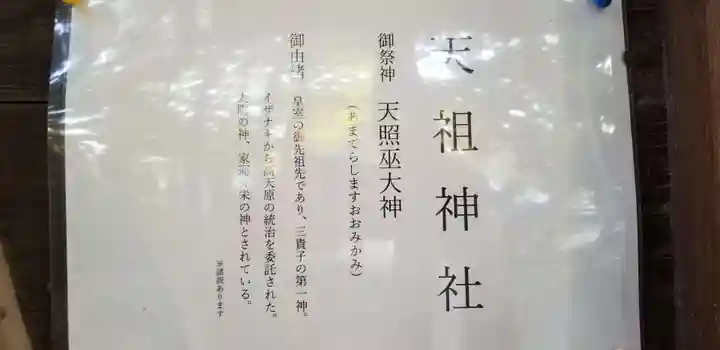 天祖神社
御祭神 天照巫大神
(あまてらしますおおみかみ)
御由緒 皇室の御先祖先であり、三貴子の第一神。
イザナキから高天原の統治を委託された。
太陽の神、家 栄の神とされている。
※諸説あります